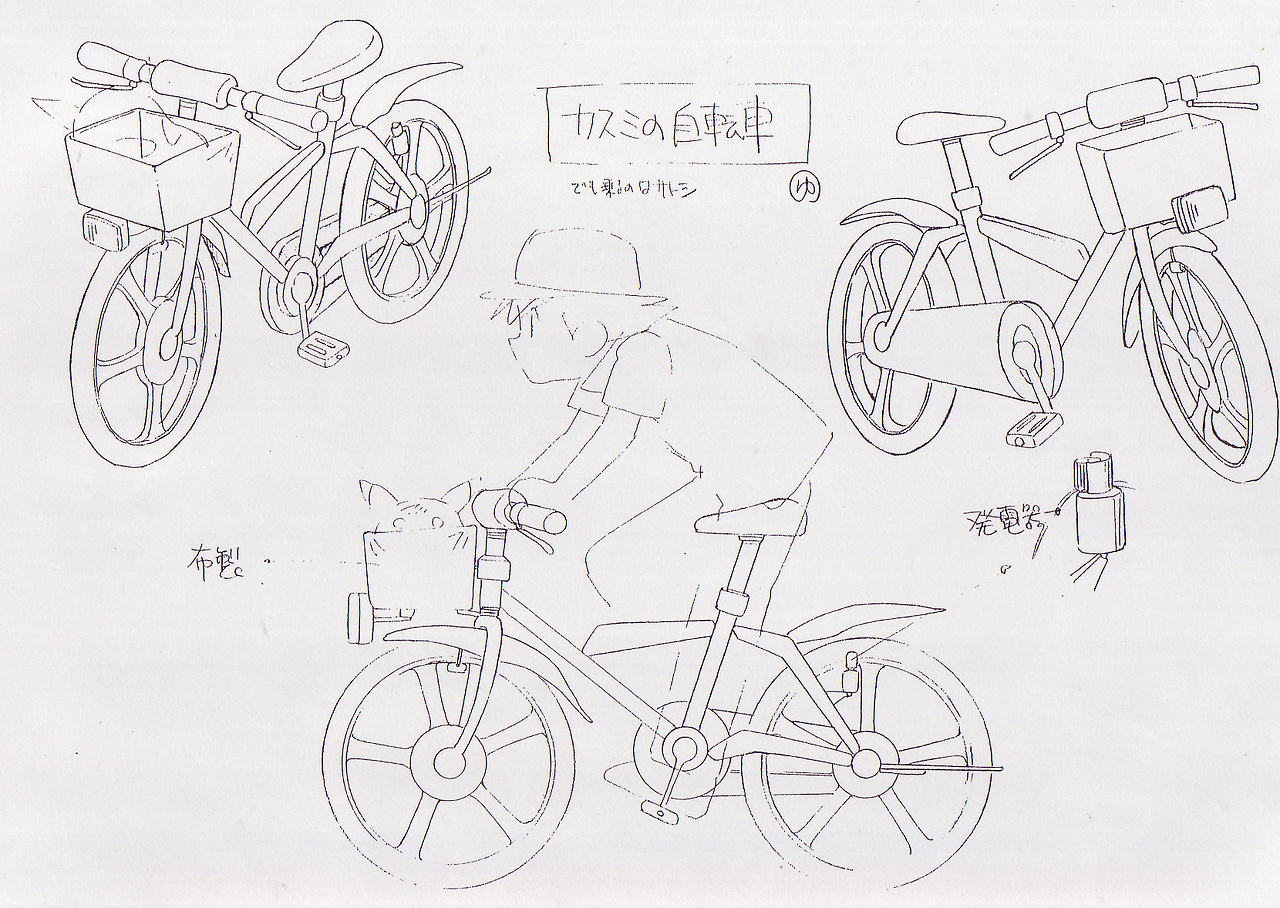 カスミの自転車
でも乗るのはサトシ
ゆ
布製
発電器